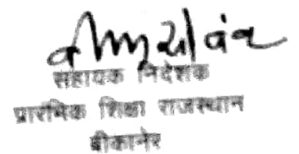 सहायक निदेशक
प्रारंभिक शिक्षा राजस्थान
बीकानेर